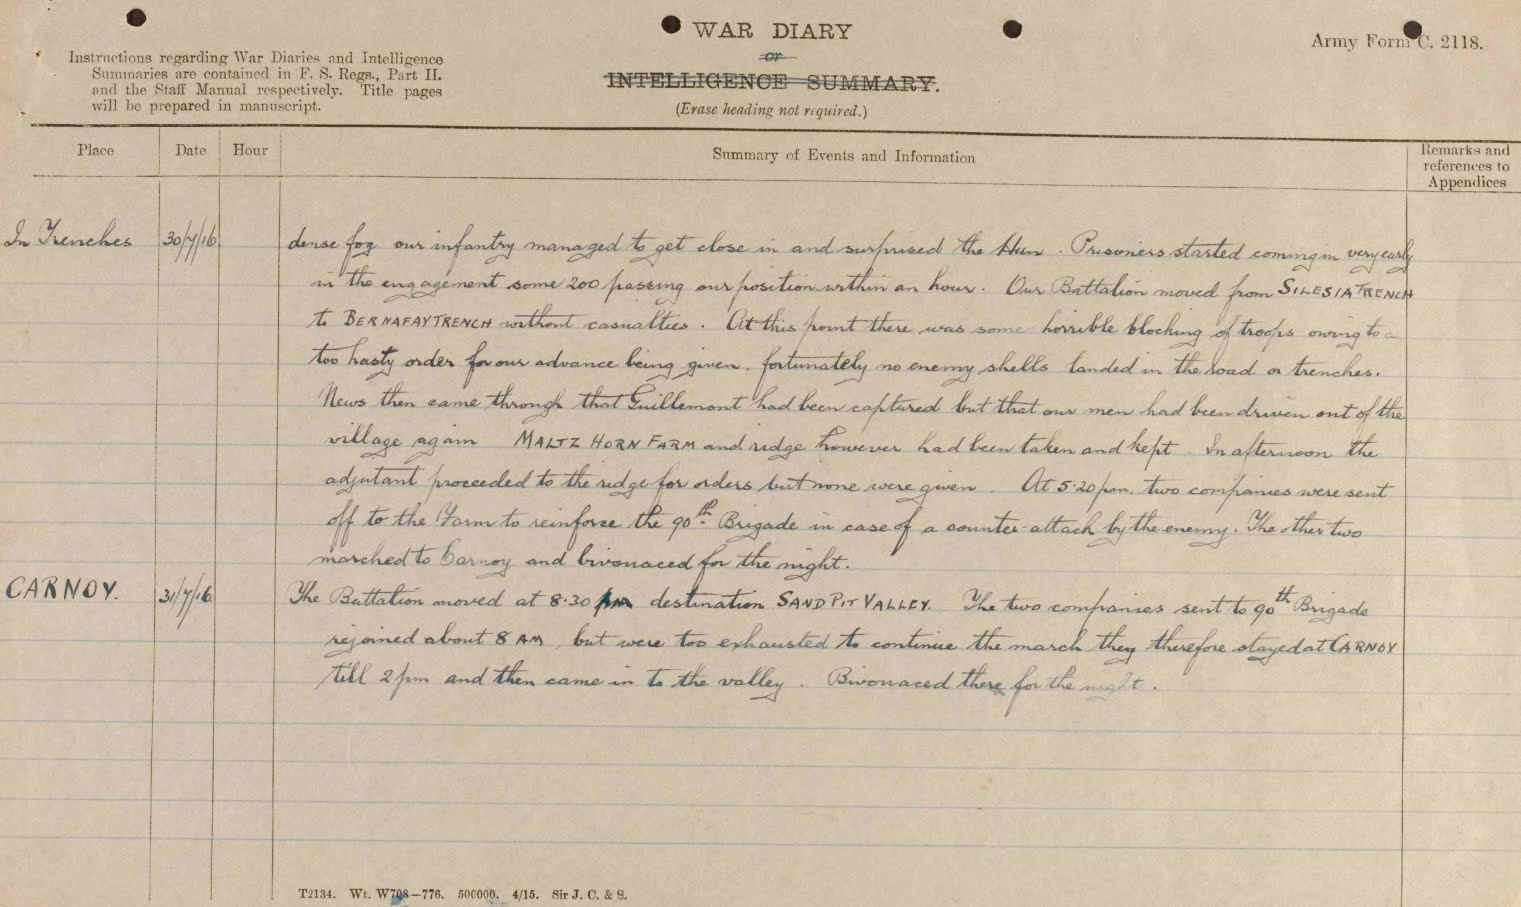 WAR DIARY
or
INTELLIGENCE SUMMARY.
(Erase heading not required.)
Army Form C. 2118.
Instructions regarding War Diaries and Intelligence
Summaries are contained in F. S. Regs., Part II.
and the Staff Manual respectively. Title pages
will be prepared in manuscript.
Place Date Hour Summary of Events and Information Remarks and
references to
Appendices
In Trenches 30/7/16 dense fog our infantry managed to get close in and surprised the Hun. Prisoners started coming in very early
in the engagement some 200 passing our position within an hour. Our Battalion moved from SILESIA TRENCH
to BERNAFAY TRENCH without casualties. At this point there was some horrible blocking of troops owing to a
too hasty order for our advance being given. fortunately no enemy shells landed in the road or trenches.
News then came through that Guillemont had been captured but that our men had been driven out of the
village again MALTZ HORN FARM and ridge however had been taken and kept. In afternoon the
adjutant proceeded to the ridge for orders but none were given. At 5.20 pm. two companies were sent
off to the Farm to reinforce the 90th Brigade in case of a counter-attack by the enemy. The other two
marched to Carnoy and bivouaced for the night.
CARNOY. 31/7/16 The Battalion moved at 8.30 destination SAND PIT VALLEY. The two companies sent to 90th Brigade
rejoined about 8 AM, but were too exhausted to continue the march they therefore stayed at CARNOY
till 2 pm and then came in to the valley. Bivouaced there for the night.
T2134. Wt. W708—776. 500000. 4/15. Sir J. C. & S.